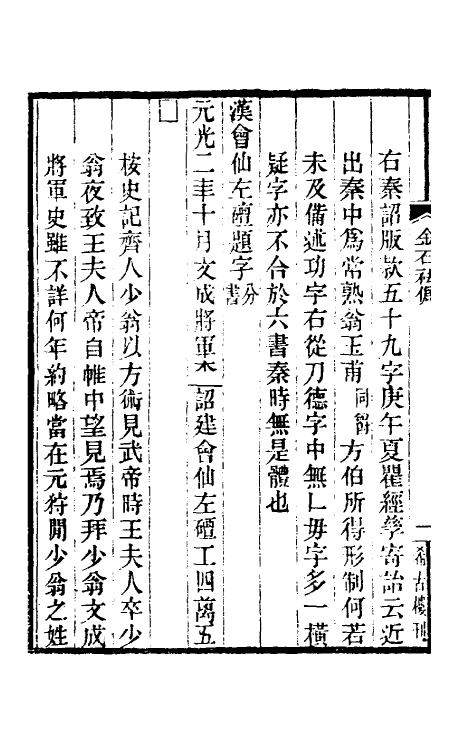 金石補僞
一
希古樓刊
右秦詔版欵五十九字庚午夏瞿經孳寄詒云近
出秦中爲常熟翁玉甫同爵方伯所得形制何若
未及備述功字右從刀德字中無乚毋字多一橫
疑字亦不合於六書秦時無是體也
漢會仙左䃪題字分書
元光二年十月文成將軍𠦑 詔建會仙左䃪工四萬五
□
按史記齊人少翁以方術見武帝時王夫人卒少
翁夜致王夫人帝自帷中望見焉乃拜少翁文成
將軍史雖不詳何年約略當在元狩閒少翁之姓